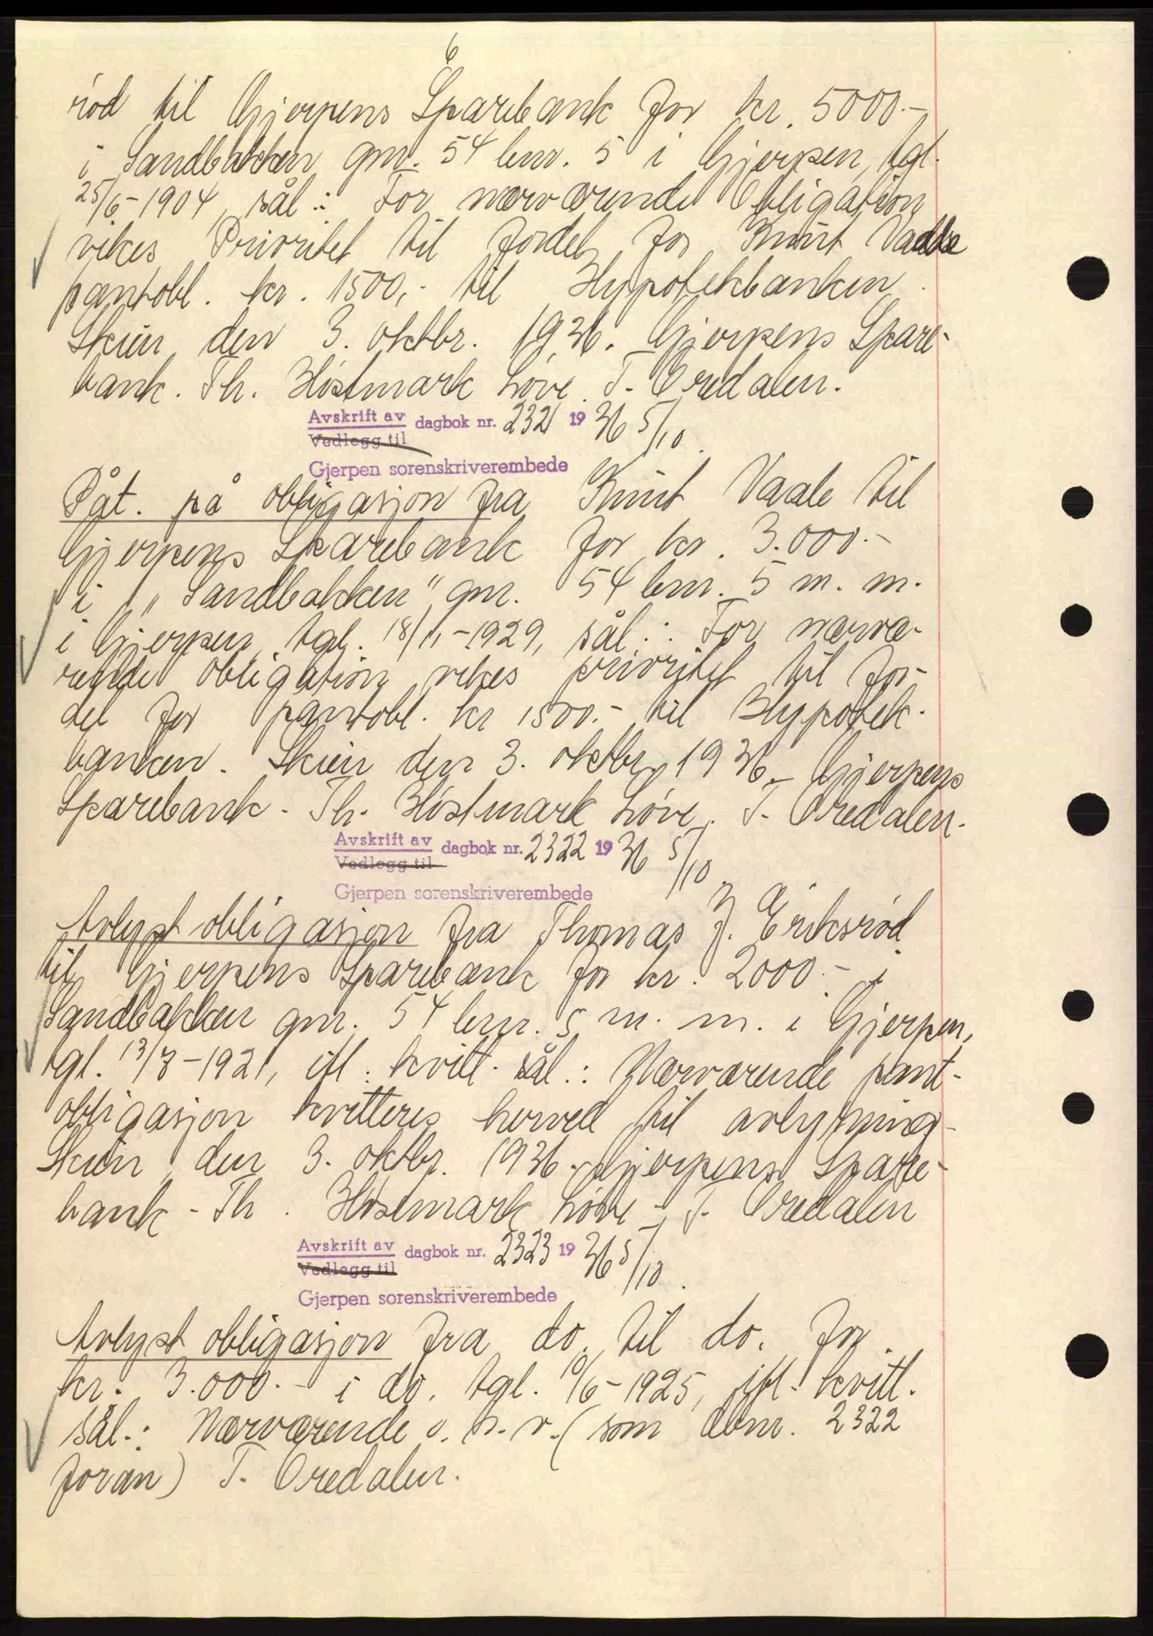 6
rød til Gjerpens Sparebank for kr. 5000.-
i Sandbakken gnr. 54 bnr. 5 i Gjerpen, tgl.
25/6-1904, sål.: For nærværende Obligation
vikes Prioritet til fordel for Knut Vaale
pantobl. kr. 1500,- til Hypotekbanken.
Skien den 3. oktbr. 1936. Gjerpens Spare-
bank. Th. Høstmark Løve. T. Oredalen.
Avskrift av dagbok nr. 2321 1936 5/10.
Vedlegg til
Gjerpen sorenskriverembede
Påt. på obligasjon fra Knut Vaale til
Gjerpens Sparebank for kr. 3.000.-
i "Sandbakken" gnr. 54 bnr. 5 m. m.
i Gjerpen, tgl. 18/11-1929, sål.: For nærvæ-
rende obligation vikes prioritet til for-
del for pantobl. kr 1500.- til Hypotek-
banken. Skien den 3. oktbr. 1936. Gjerpens
Sparebank - Th. Høstmark Løve. T. Oredalen.
Avskrift av dagbok nr. 2322 1936 5/10.
Vedlegg til
Gjerpen sorenskriverembede
Avlyst obligasjon fra Thomas J. Eriksrød
til Gjerpens Sparebank for kr. 2000.- i
Sandbakken gnr. 54 bnr. 5 m. m. i Gjerpen,
tgl. 13/8-1921, ifl. kvitt. sål.: Nærværende pant-
obligasjon kvitteres herved til avlysning-
Skien, den 3. oktbr. 1936. Gjerpens Spare-
bank - Th. Høstmark Løve - T. Oredalen
Avskrift av dagbok nr. 2323 1936 5/10.
Vedlegg til
Gjerpen sorenskriverembede
Avlyst obligasjon fra do. til do. for
kr. 3.000.- i do. tgl. 10/6-1925, ifl. kvitt.
sål.: Nærværende o. s. v. (som dbnr. 2322
foran) T. Oredalen.